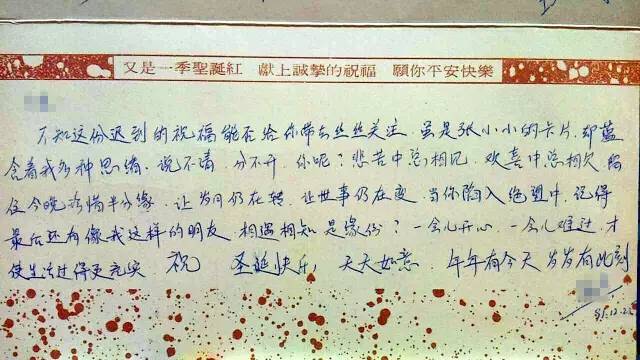 又是一季聖誕紅 獻上誠摯的祝福 願你平安快樂
不知这份迟到的祝福能否给你带去丝丝关注.虽是张小小的卡片,却蕴
含着我多种思绪.说不清.分不开.你呢?悲苦中总相见.欢喜中总相欠.
仅今晚珍惜半分缘.让岁月仍在转.让世事仍在变.当你陷入绝望中.记得
最后还有像我这样的朋友.相遇相知是缘份?一会儿开心.一会儿难过.才
使生活过得更充实 祝 圣诞快乐,天天如意 年年有今天 岁岁有此刻